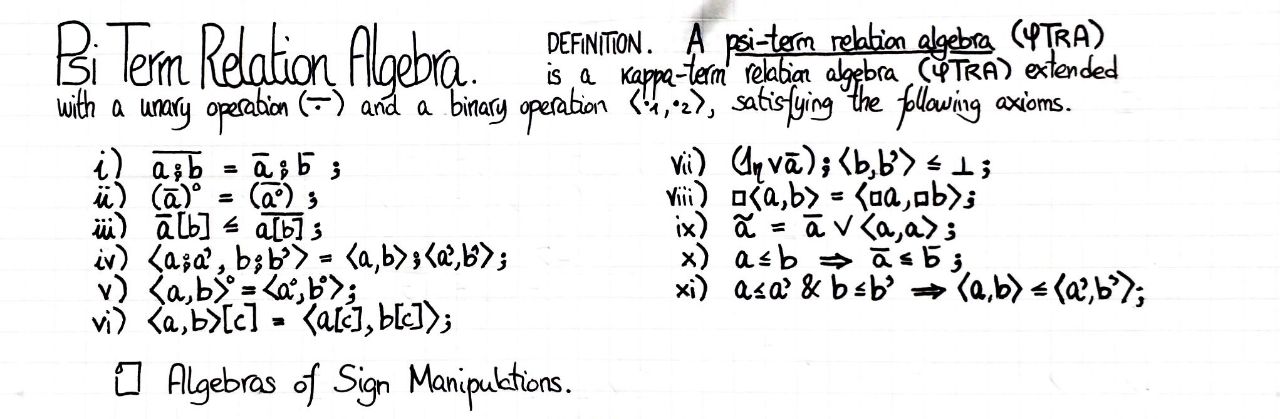 Psi Term Relation Algebra. DEFINITION. A psi-term relation algebra (ΨTRA)
is a kappa-term relation algebra (ϤTRA) extended
with a unary operation (÷) and a binary operation ⟨·₁,·₂⟩, satisfying the following axioms.
i) \overline{a⨟b} = ā⨟b̄ ;
ii) (ā)° = \overline{(a°)} ;
iii) ā[b] ≤ \overline{a[b]} ;
iv) ⟨a⨟a', b⨟b'⟩ = ⟨a,b⟩⨟⟨a',b'⟩;
v) ⟨a,b⟩° = ⟨a°,b°⟩;
vi) ⟨a,b⟩[c] = ⟨a[c],b[c]⟩;
vii) (1η∨ā);⟨b,b'⟩ ≤ ⊥;
viii) □⟨a,b⟩ = ⟨□a,□b⟩;
ix) ã = ā ∨ ⟨a,a⟩;
x) a≤b ⇒ ā≤b̄ ;
xi) a≤a' & b≤b' ⇒ ⟨a,b⟩ ≤ ⟨a',b'⟩;
□ Algebras of Sign Manipulations.